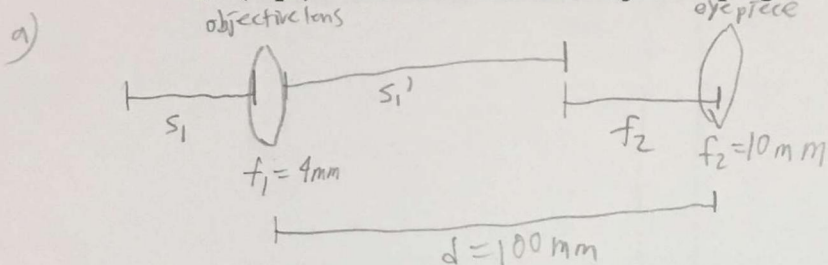 a)
objective lens
eyepiece
s₁
s₁'
f₂
f₁ = 4mm
f₂ = 10 mm
d = 100 mm